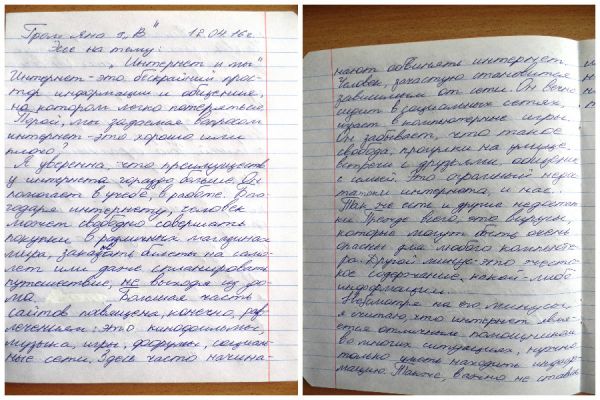 Гром Яна 8 „В" 18.04.16г.
Эссе на тему:
„Интернет и мы"
Интернет - это бескрайний прос-
тор информации и общения,
на котором легко потеряться
Порой, мы задаемся вопросом
интернет - это хорошо или
плохо?
Я уверенна, что преимуществ
у интернета гораздо больше. Он
помогает в учебе, в работе. Бла
годаря интернету, человек
может свободно совершать
покупки в различных магазинах
мира, заказать билеты на само-
лет или даже спланировать
путешествие, не выходя из до-
ма. Большая часть
сайтов посвящена, конечно, раз
лечениям: это кинофильмы,
музыка, игры, форумы, социаль-
ные сети. Здесь часто начина-
нают обвинять интернет.
Человек, зачастую становится
зависимым от сети. Он вечно
сидит в социальных сетях,
играет в компютерные игры.
Он забывает, что такое
свобода, прогулки на улице,
встречи с друзьями, общение
с семьёй. Это огромный недос
таток интернета, и нас.
Так же есть и другие недостат
ки. Прежде всего, это вирусы,
которые могут быть очень
опасны для любого компьюте-
ра. Другой минус - это жесто-
кое содержание, какой-либо
информации.
Несмотря на его минусы
я считаю, что интернет явля-
ется отличным помощником
во многих ситуациях, нужно
только уметь находить инфор-
мацию. Также, важно не ставить